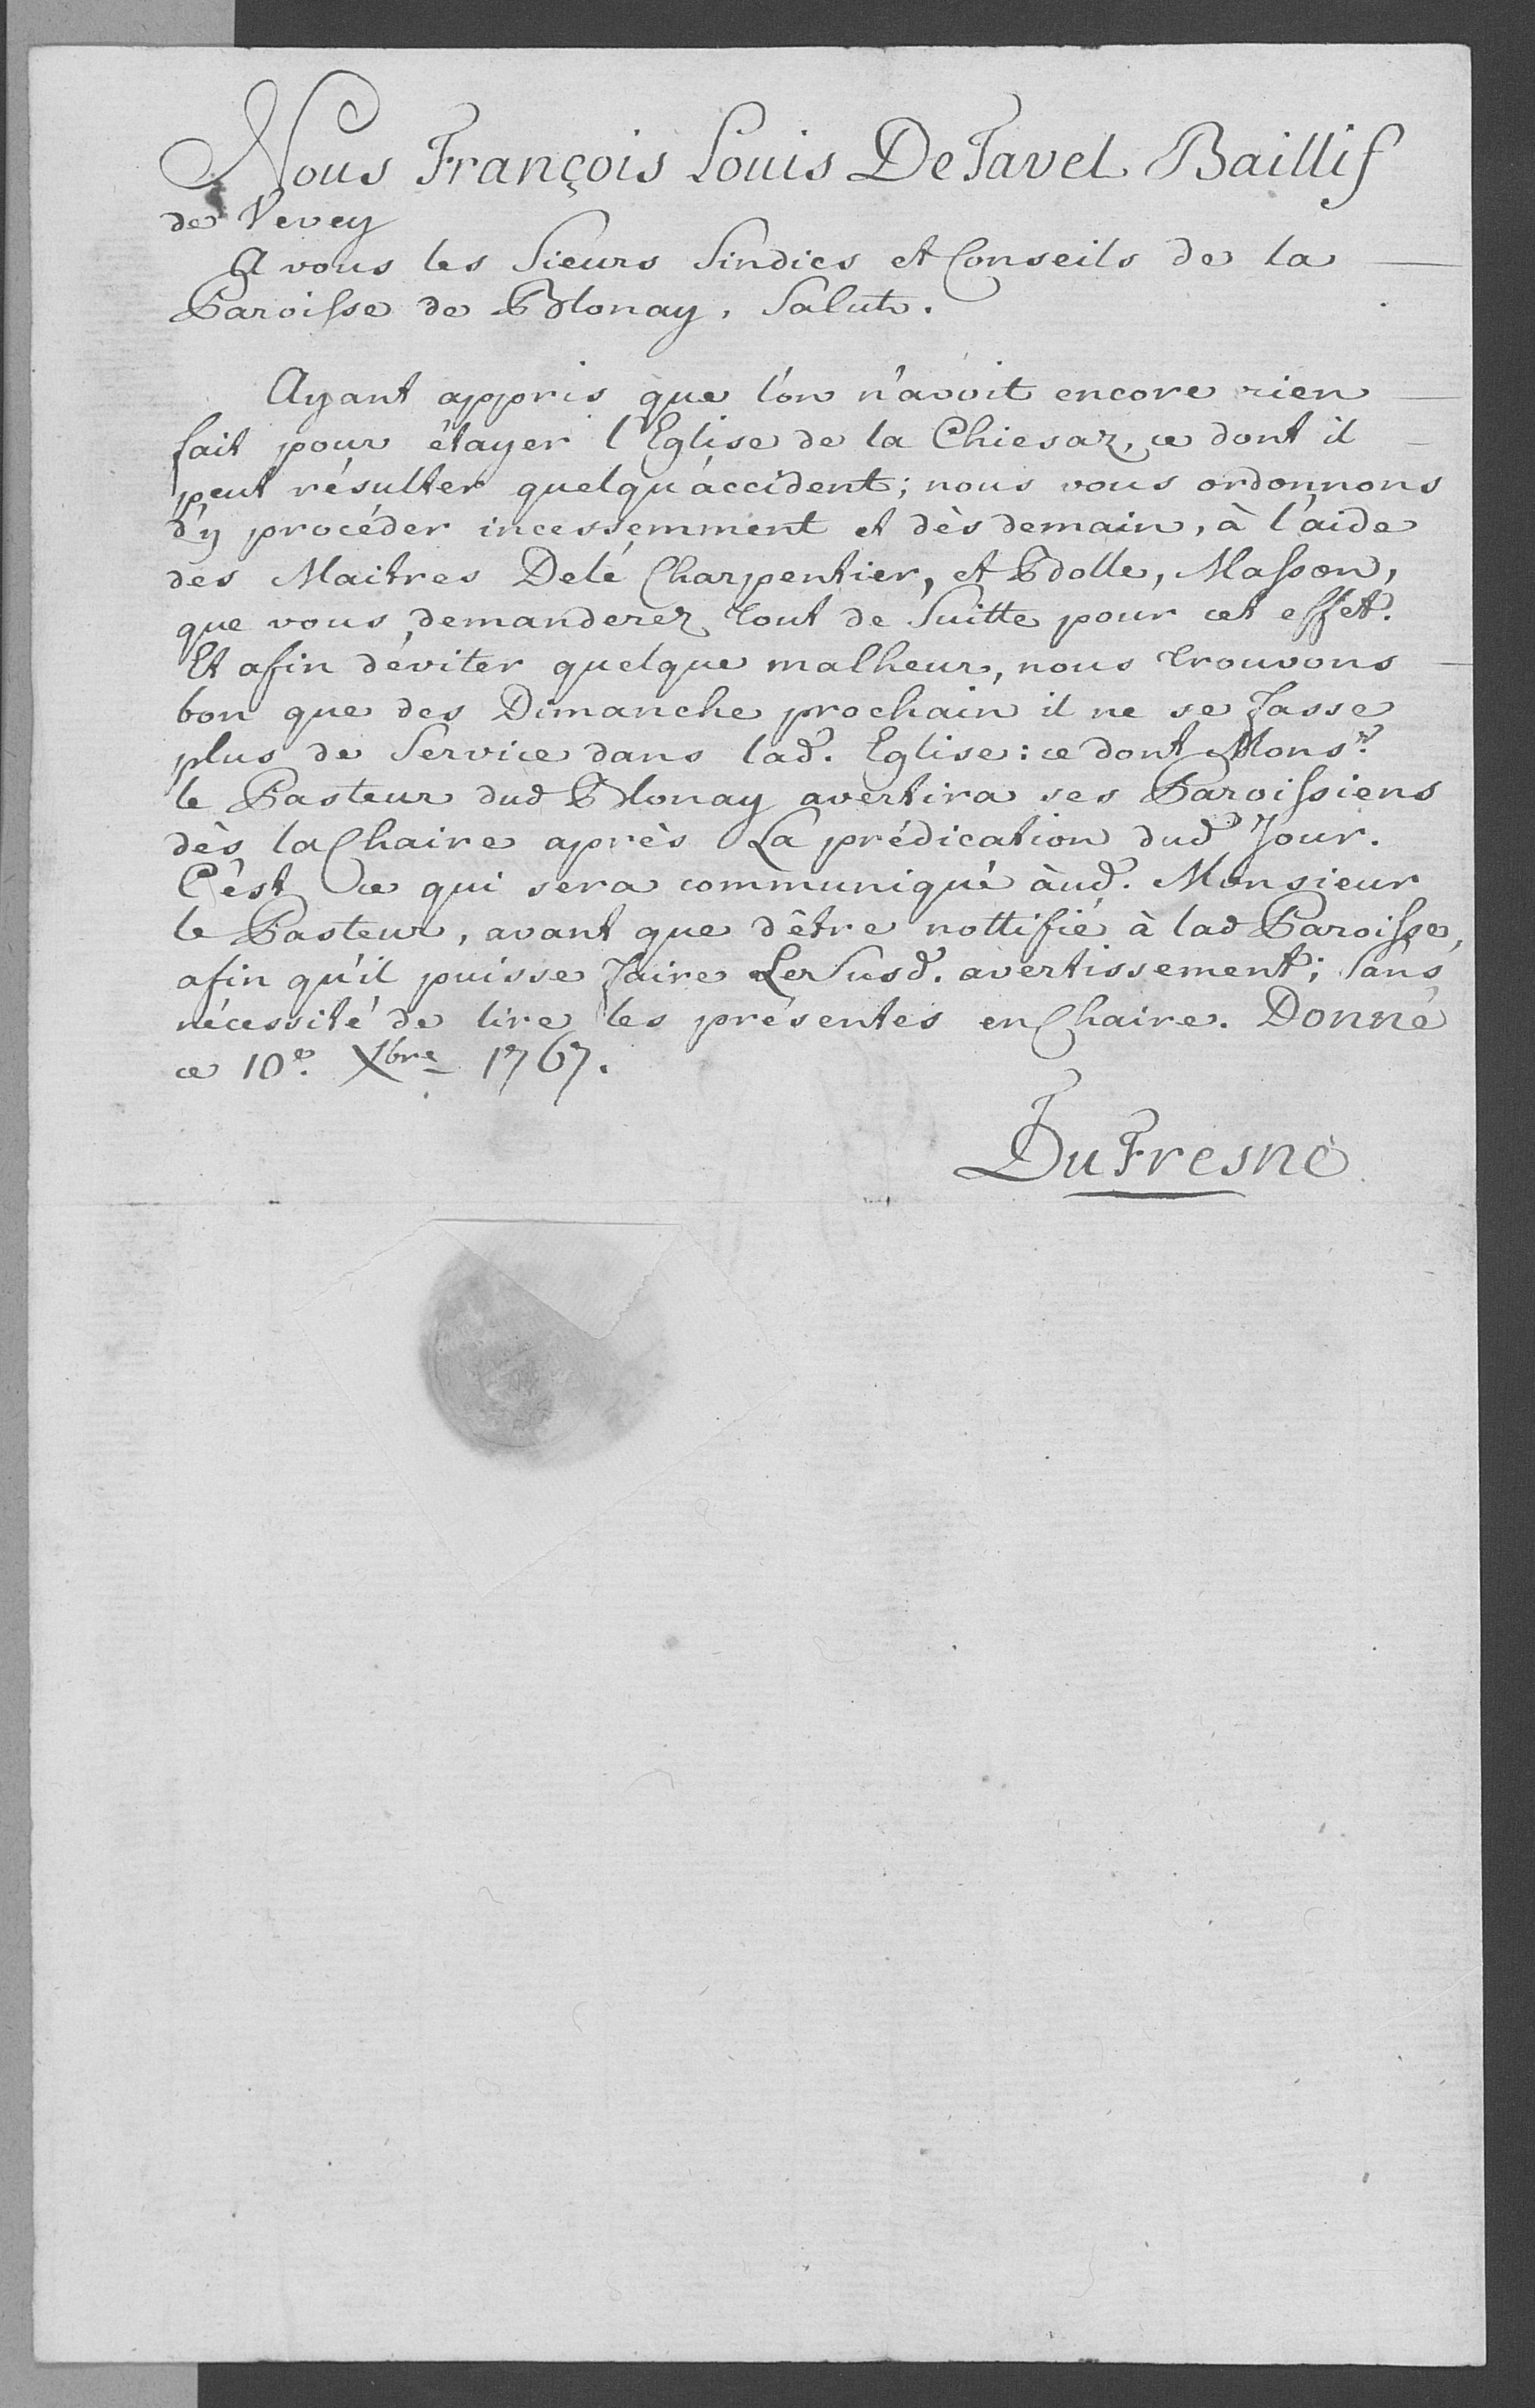 Nous François Louis De Tavel Baillif
de Vevey
A vous les Sieurs Sindics et Conseils de la
Paroisse de Blonay, Salut.
Ayant appris que l'on n'avoit encore rien
fait pour étayer l'Eglise de la Chiesaz, ce dont il
peut résulter quelqu'accident; nous vous ordonnons
d'y procéder incessemment et dès demain, à l'aide
des Maitres Delé Charpentier, et Dolle, Masson,
que vous demanderez tout de Suitte pour cet effet.
Et afin d'éviter quelque malheur, nous trouvons
bon que des Dimanche prochain il ne se fasse
plus de Service dans lad. Eglise: ce dont Monsr.
le Pasteur dud Blonay avertira ses Paroissiens
dès la Chaire après La prédication dud Jour.
C'est ce qui sera communiqué àud. Monsieur
le Pasteur, avant que d'être nottifié à lad Paroisse,
afin qu'il puisse faire Le Susd. avertissement; Sans
nécessité de lire les présentes en Chaire. Donné
ce 10e. Xbre 1767.
DuFresne